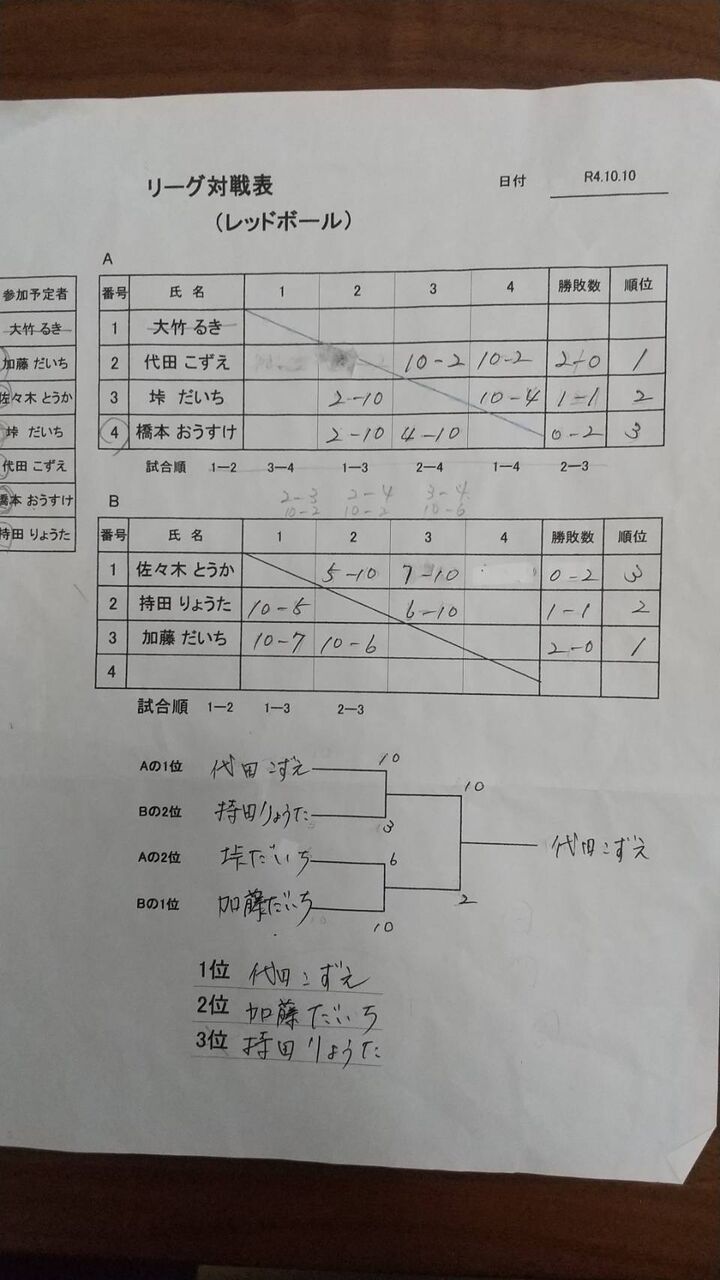 リーグ対戦表
（レッドボール）
日付 R4.10.10
参加予定者
大竹 るき
加藤 だいち
佐々木 とうか
峠 だいち
代田 こずえ
橋本 おうすけ
持田 りょうた
A
番号 氏 名 1 2 3 4 勝敗数 順位
1 大竹 るき
2 代田 こずえ 10-2 10-2 2-0 1
3 峠 だいち 2-10 10-4 1-1 2
4 橋本 おうすけ 2-10 4-10 0-2 3
試合順 1―2 3―4 1―3 2―4 1―4 2―3
2-3 2-4 3-4
10-2 10-2 10-6
B
番号 氏 名 1 2 3 4 勝敗数 順位
1 佐々木 とうか 5-10 7-10 0-2 3
2 持田 りょうた 10-5 6-10 1-1 2
3 加藤 だいち 10-7 10-6 2-0 1
4
試合順 1―2 1―3 2―3
Aの1位 代田こずえ 10
Bの2位 持田りょうた 3
Aの2位 峠だいち 6
Bの1位 加藤だいち 10
10
2
代田こずえ
1位 代田こずえ
2位 加藤だいち
3位 持田りょうた